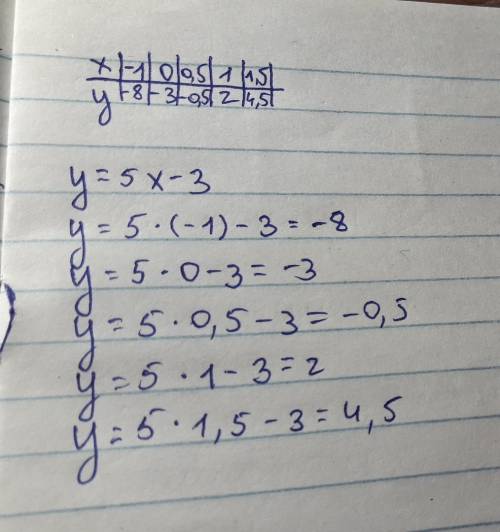 x | -1 | 0 | 0,5 | 1 | 1,5
y | -8 | -3 | -0,5 | 2 | 4,5
y = 5x - 3
y = 5 · (-1) - 3 = -8
y = 5 · 0 - 3 = -3
y = 5 · 0,5 - 3 = -0,5
y = 5 · 1 - 3 = 2
y = 5 · 1,5 - 3 = 4,5